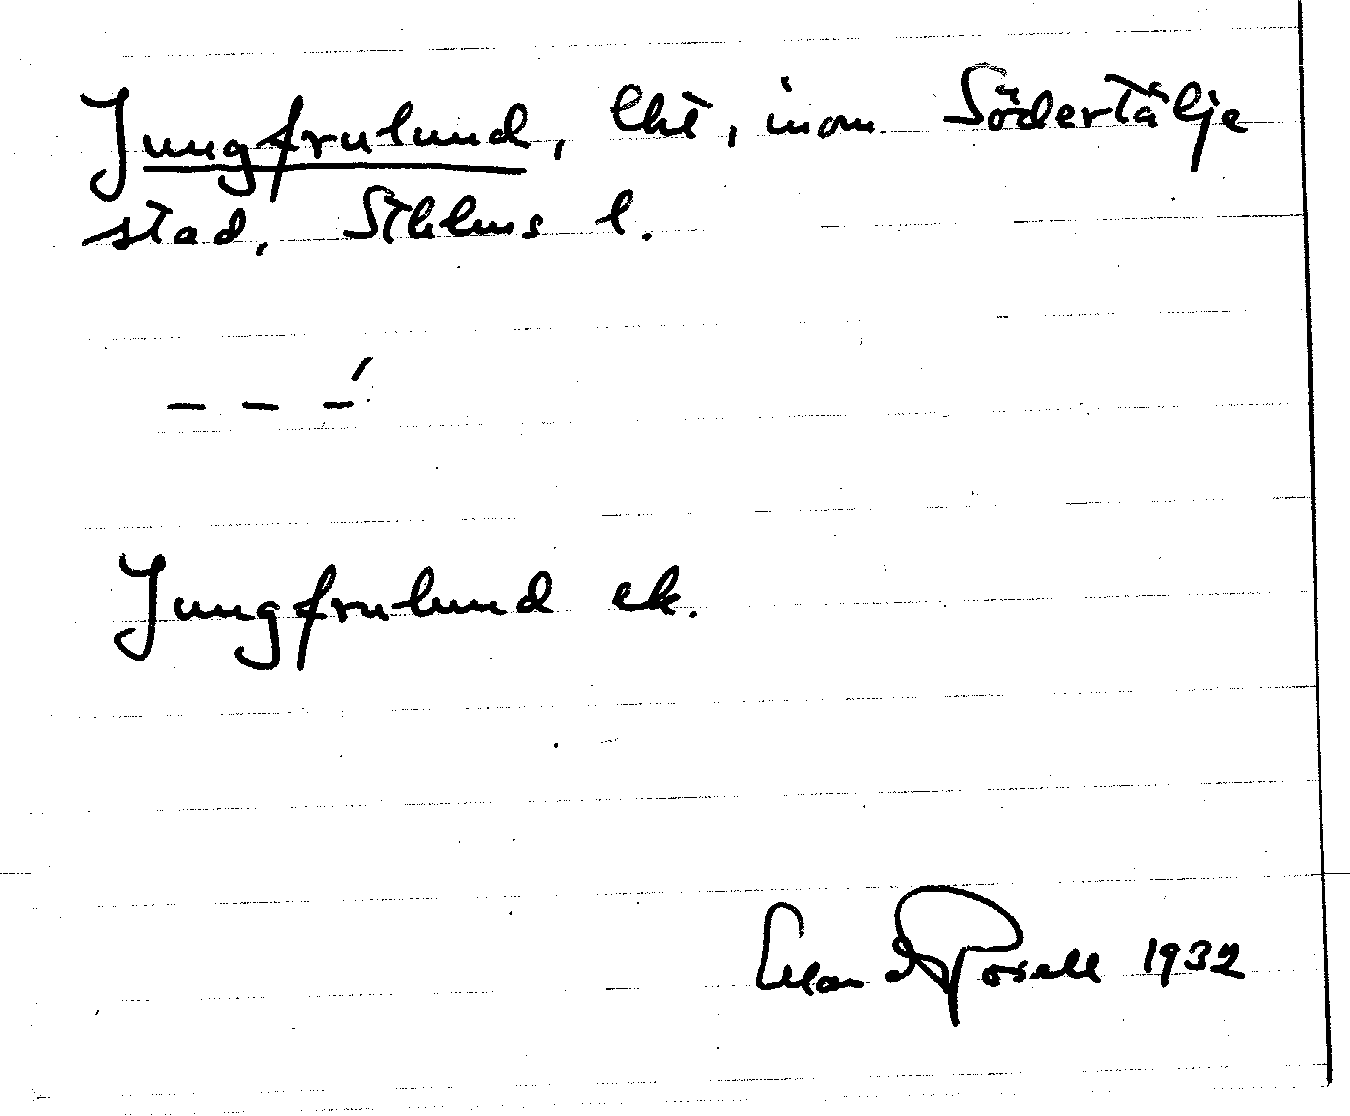 Jungfrulund, lht, inom Södertälje
stad, Sthlms l.
– – –́
Jungfrulund ek.
Erland Rosell 1932